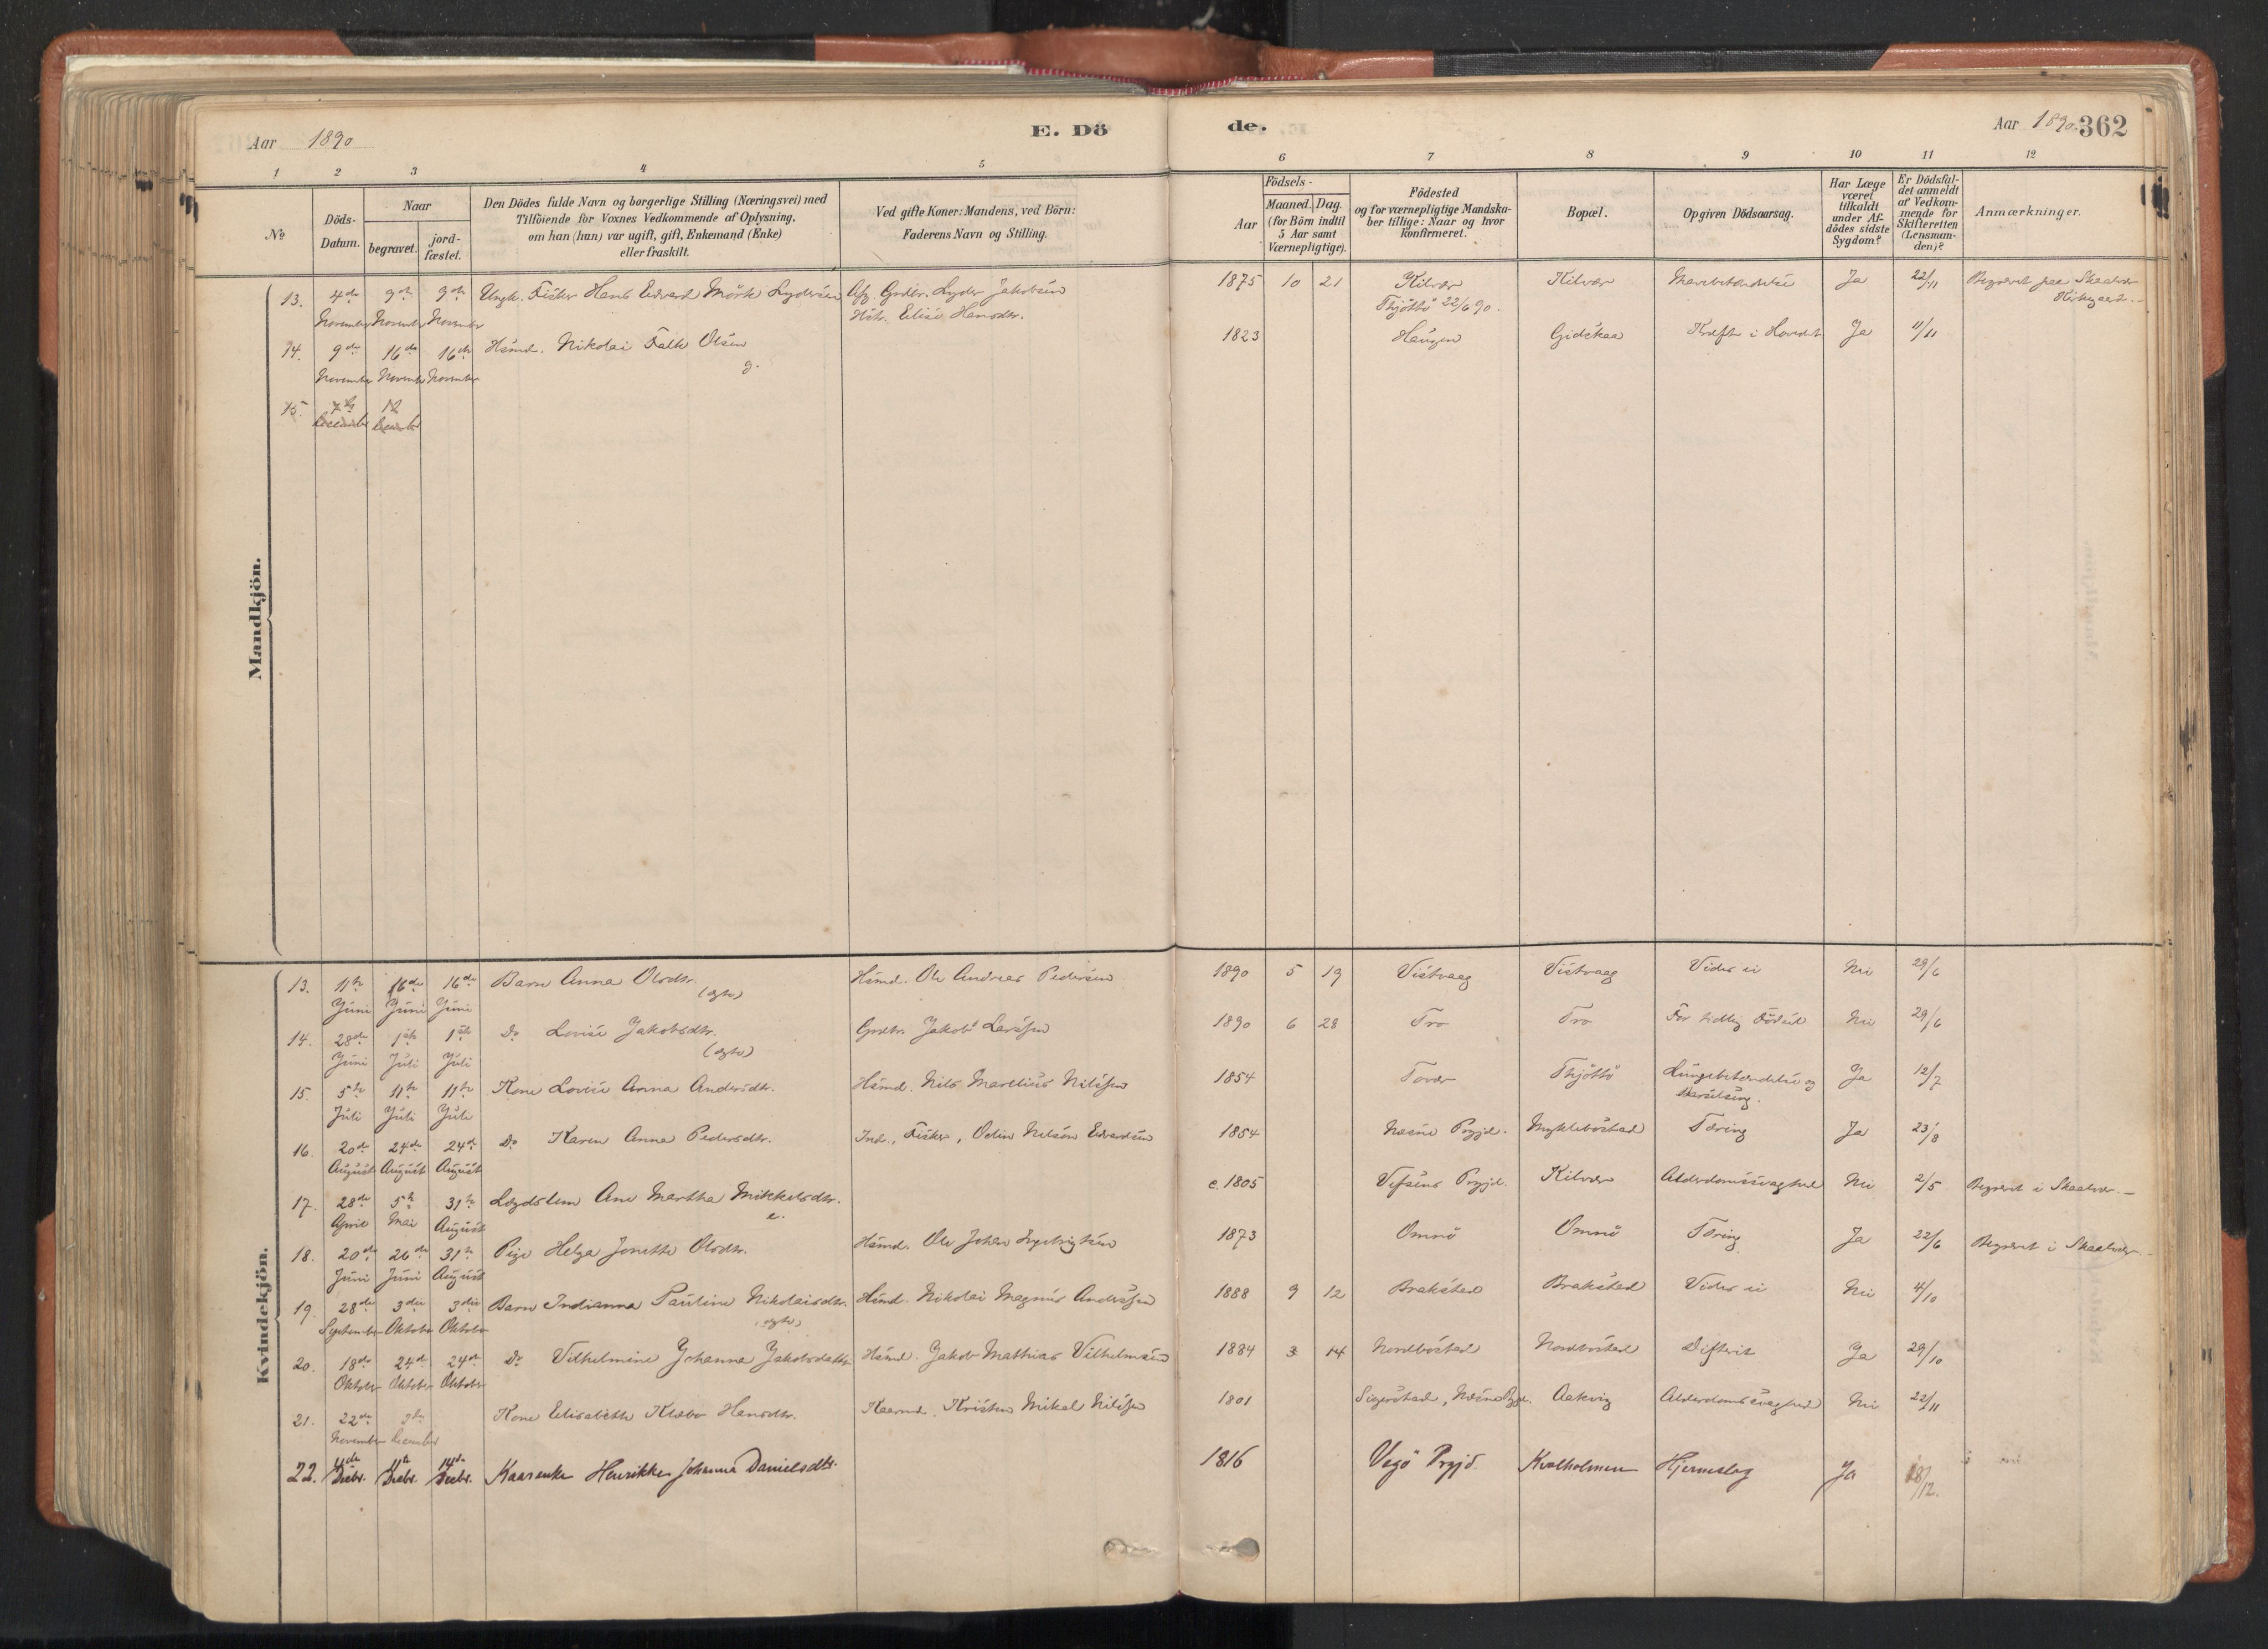 Aar 1890
E. Dö
de.
Aar 1890. 362
1 2 3 4 5 6 7 8 9 10 11 12
No
Döds-
Datum.
Naar
begravet.
jord-
fæstet.
Den Dödes fulde Navn og borgerlige Stilling (Næringsvei) med
Tilföiende for Voxnes Vedkommende af Oplysning,
om han (hun) var ugift, gift, Enkemand (Enke)
eller fraskilt.
Ved gifte Koner: Mandens, ved Börn:
Faderens Navn og Stilling.
Födsels-
Aar
Maaned. Dag.
(for Börn indtil
5 Aar samt
Værnepligtige).
Födested
og for værnepligtige Mandska-
ber tillige: Naar og hvor
konfirmeret.
Bopæl.
Opgiven Dödsaarsag.
Har Læge
været
tilkaldt
under Af-
dödes sidste
Sygdom?
Er Dödsfal-
det anmeldt
af Vedkom-
mende for
Skifteretten
(Lensman-
den)?
Anmærkninger.
Mandkjön.
13. 4de 9de 9de Ungk. Fisker Hans Edvard Mörk Lydersen Afg. Grdbr. Lyder Jakobsen 1875 10 21 Kilvær Kilvær Mavebetændelse Ja 22/11 Begravet paa Skaalvær
November November November Hstr. Elise Hansdtr. Thjöttö 22/6 90. Kirkegaard.
14. 9de 16de 16de Hsmd. Nikolai Falk Olsen 1823 Haugen Gidskaa Kræft i Hovedet Ja 11/11
November November November g.
15. 7de 12
December December
Kvindekjön.
13. 11te 16de 16de Barn Anna Olsdtr. Hsmd. Ole Andreas Pedersen 1890 5 19 Vistvaag Vistvaag Vides ei Nei 29/6
Juni Juni Juni (ægte)
14. 28de 1ste 1ste Do Lovise Jakobsdtr. Grdbr. Jakob Larssen 1890 6 28 Tro Tro For tidlig Födsel Nei 29/6
Juni Juli Juli (ægte)
15. 5te 11te 11te Kone Lovise Anna Andersdtr. Hsmd. Nils Marelius Nilssen 1854 Tovær Thjöttö Lungebetændelse og Ja 12/7
Juli Juli Juli Barselseng.
16. 20de 24de 24de Do Karen Anna Pedersdtr. Ind., Fisker, Odin Nelson Edvardsen 1854 Næsne Prgjd. Myklebostad Tæring Ja 23/8
August August August
17. 28de 5te 31te Lægdslem Ane Martha Mikkelsdtr. c. 1805 Vefsens Prgjd. Kilvær Alderdomssvaghed Nei 2/5 Begravet i Skaalvær. —
April Mai August e.
18. 20de 26de 31te Pige Helga Jonette Olsdtr. Hsmd. Ole Johan Ingebrigtsen 1873 Omnö Omnö Tæring Ja 22/6 Begravet i Skaalvær
Juni Juni August
19. 28de 3die 3die Barn Indianna Pauline Nikolaisdtr. Hsmd. Nikolai Magnus Anderssen 1888 9 12 Brakstad Brakstad Vides ei Nei 4/10
September Oktober Oktober (ægte)
20. 18de 24de 24de Do Vilhelmine Johanna Jakobsdatter Hsmd. Jakob Mathias Vilhelmsen 1884 3 14 Nordbostad Nordbostad Difterit Ja 29/10
Oktober Oktober Oktober
21. 22de Kone Elisabeth Klæbo Hansdtr. Kaarmd. Kristen Mikal Nilssen 1801 Sigerstad, Næsne Prgjd. Aakvig Alderdomssvaghed Nei 22/11
November December
22. 4de 11te 14de Kaarenke Henrikke Johanna Danielsdtr. 1816 Vegö Prgjd. Kvalholmen Hjerneslag Ja 18/12.
Decbr. Decbr. Decbr.